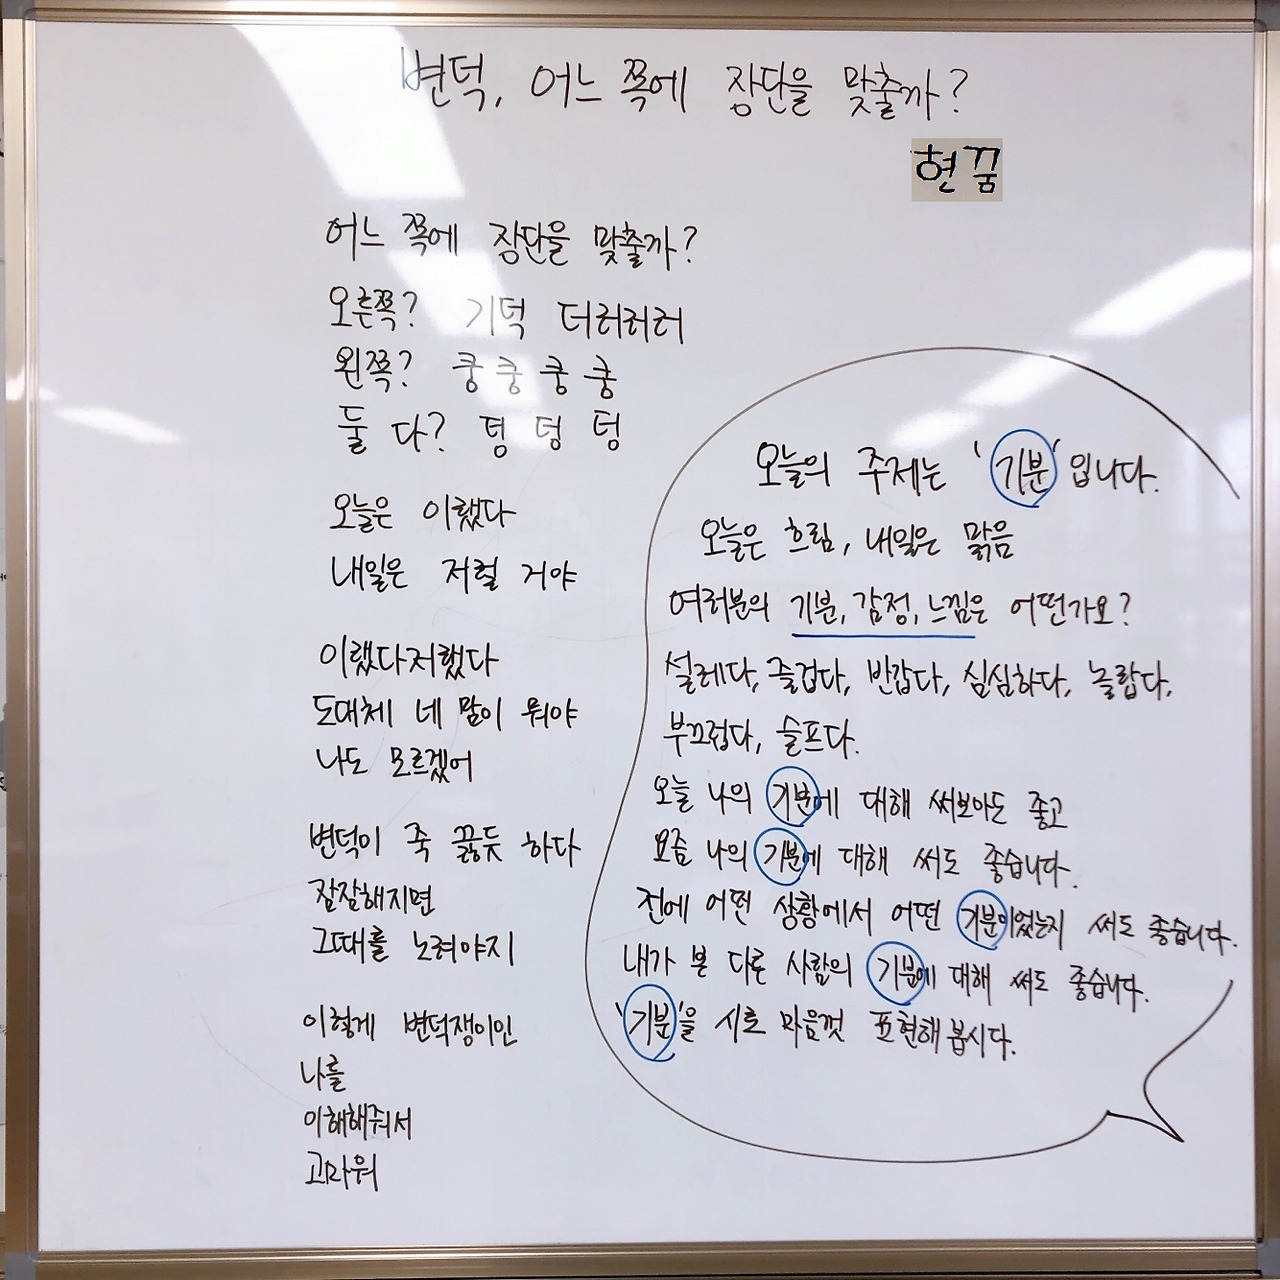 변덕, 어느 쪽에 장단을 맞출까?
현꿈
어느 쪽에 장단을 맞출까?
오른쪽? 기덕 더러러러
왼쪽? 쿵 쿵 쿵 쿵
둘 다? 덩 덩 덩
오늘은 이랬다
내일은 저럴 거야
이랬다저랬다
도대체 네 맘이 뭐야
나도 모르겠어
변덕이 죽 끓듯 하다
잠잠해지면
그때를 노려야지
이렇게 변덕쟁이인
나를
이해해줘서
고마워
오늘의 주제는 '기분'입니다.
오늘은 흐림, 내일은 맑음
여러분의 기분, 감정, 느낌은 어떤가요?
설레다, 즐겁다, 반갑다, 심심하다, 놀랍다,
부끄럽다, 슬프다.
오늘 나의 기분에 대해 써보아도 좋고
요즘 나의 기분에 대해 써도 좋습니다.
전에 어떤 상황에서 어떤 기분이었는지 써도 좋습니다.
내가 본 다른 사람의 기분에 대해 써도 좋습니다.
'기분'을 시로 마음껏 표현해 봅시다.